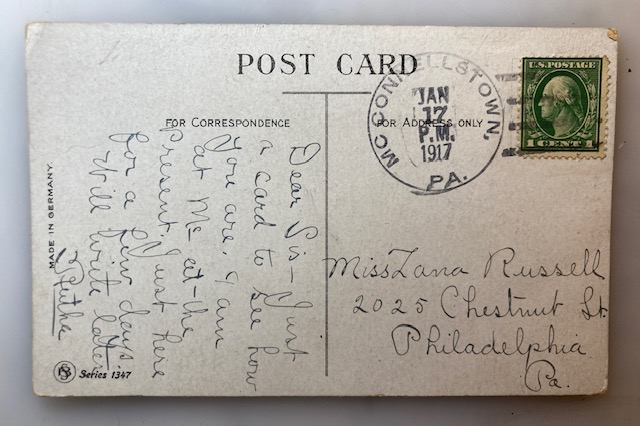 POST CARD
FOR CORRESPONDENCE
FOR ADDRESS ONLY
McCONNELLSTOWN,
JAN
17
P.M.
1917
PA.
U.S. POSTAGE
1 CENT 1
Dear Sis – Just
a card to see how
you are. I am
at Mc at the
Present. Just here
for a few days.
Will write later
Rutha
Miss Zana Russell
2025 Chestnut St.
Philadelphia
Pa.
MADE IN GERMANY.
Series 1347